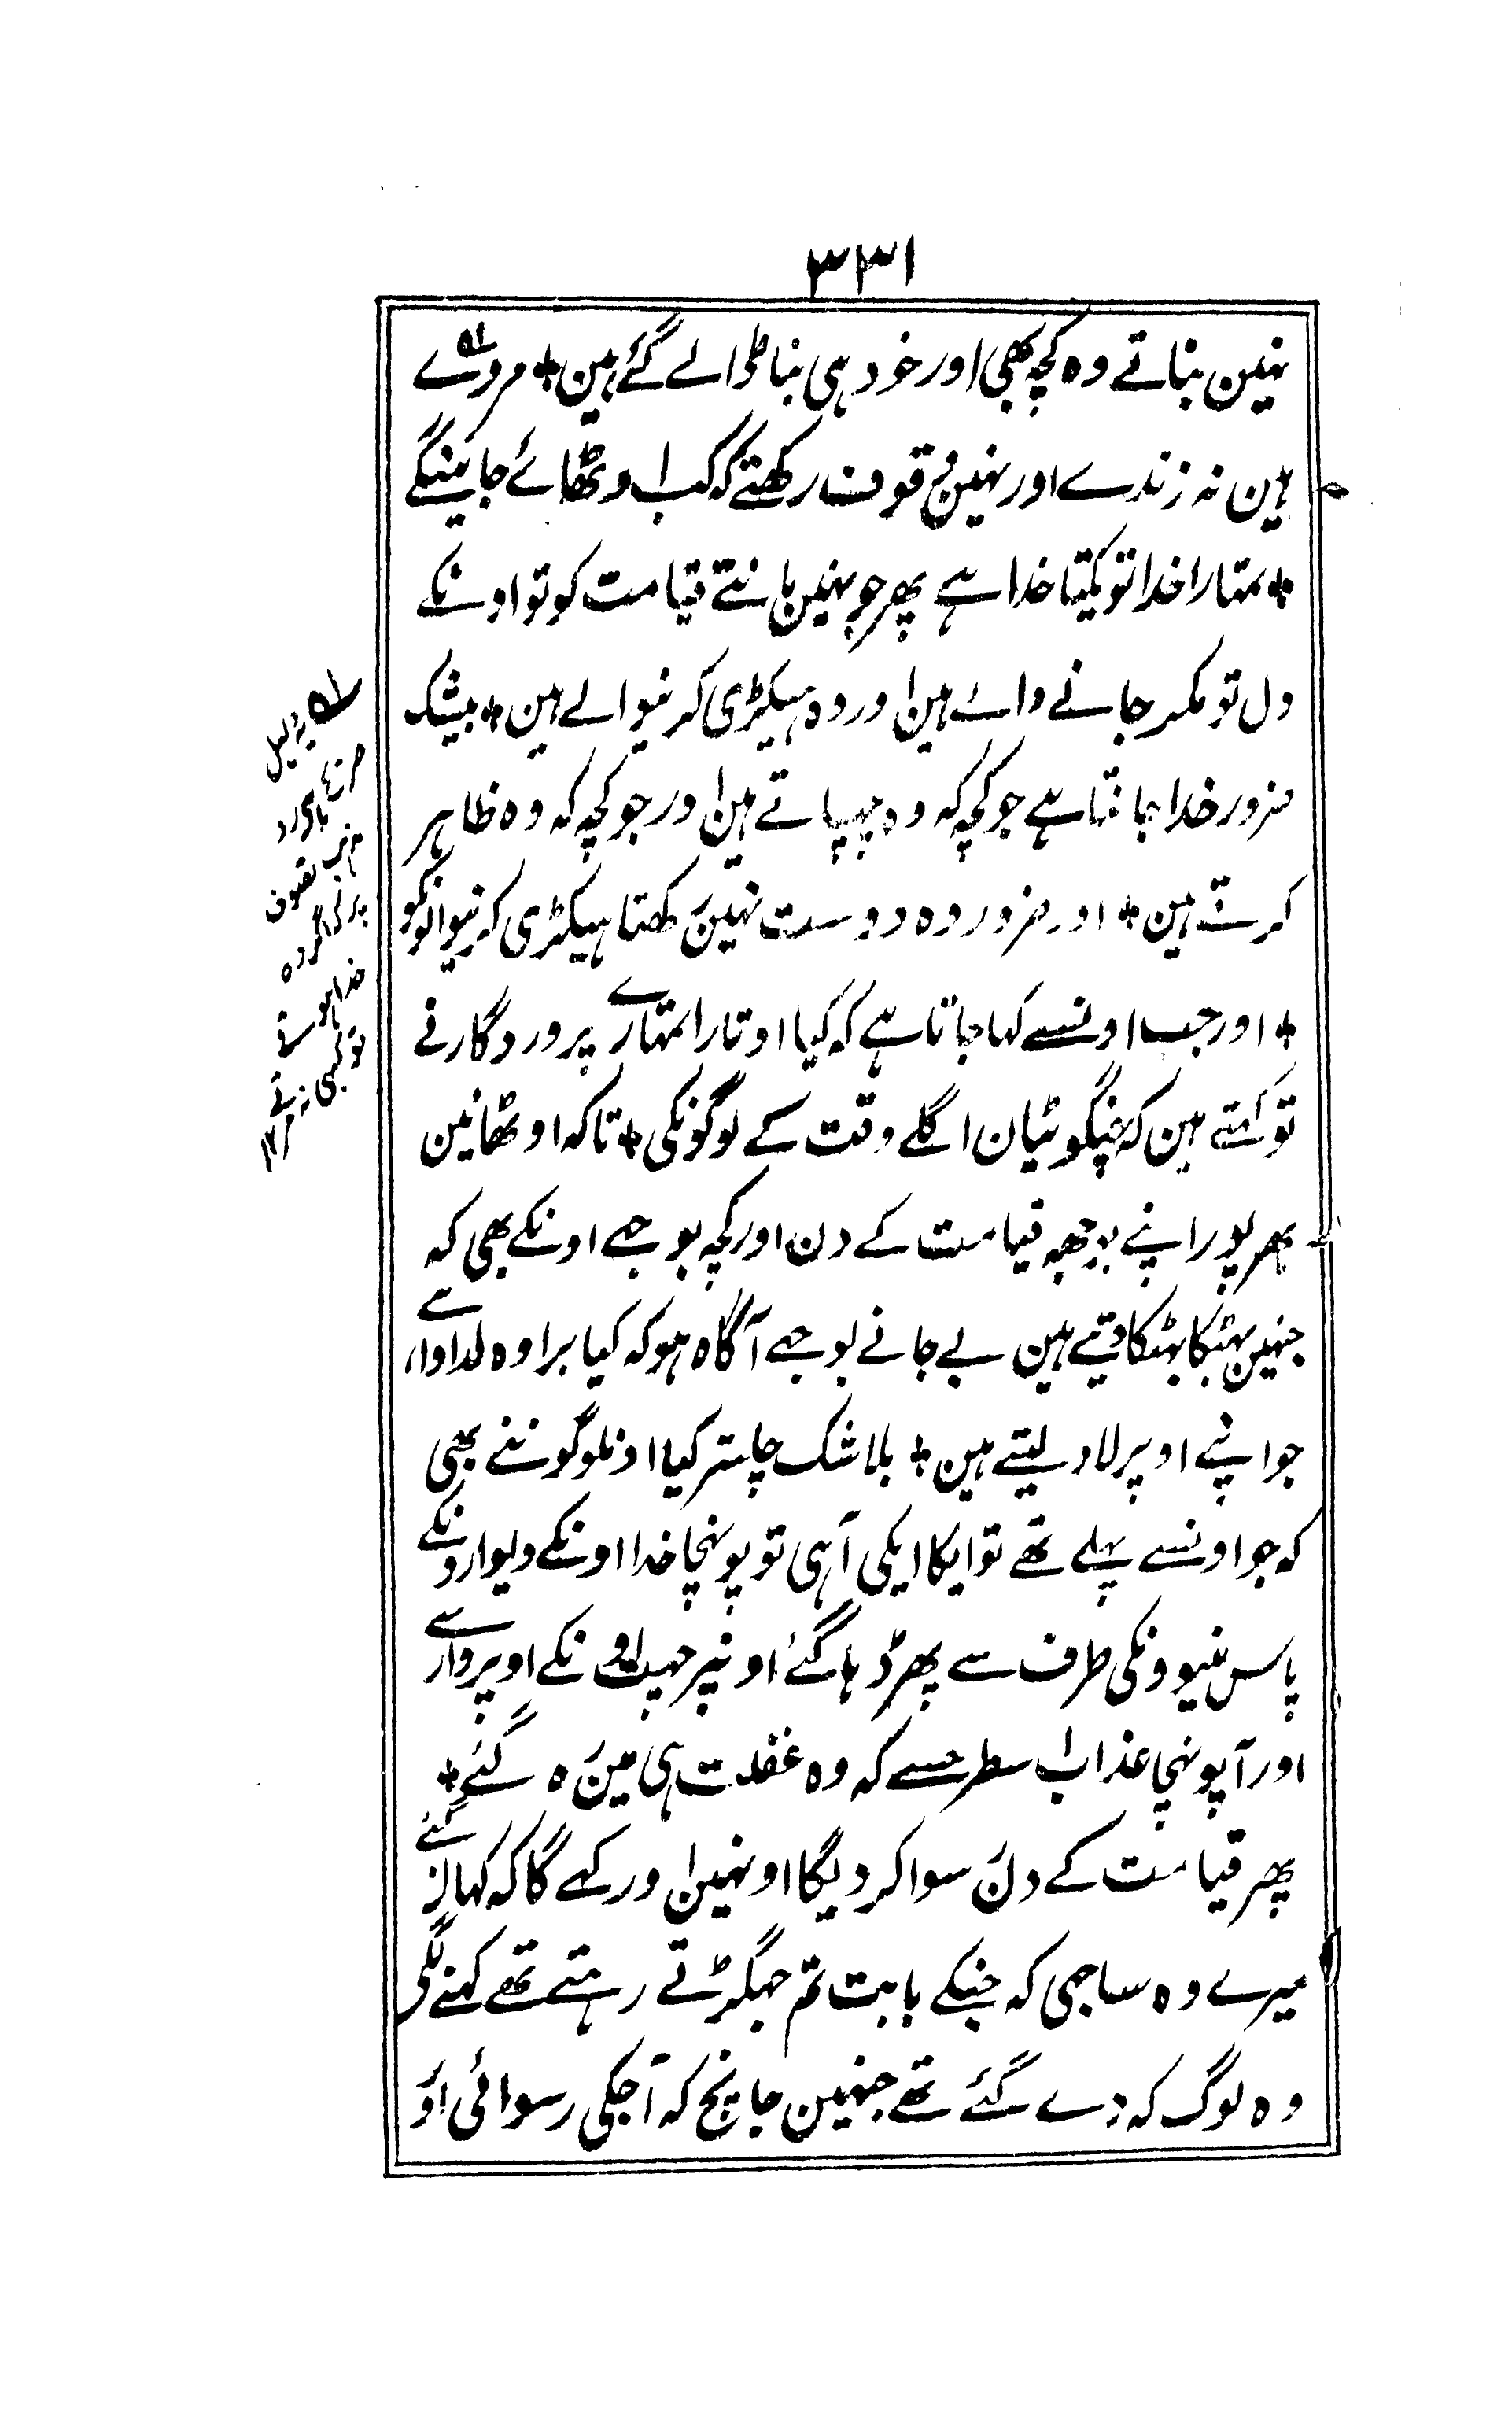 ۳۳۱
نہین بناتے وہ کچہ بھی اور خود ہی بنا ڈالے گئے ہین + مردے
ہین نہ زندے اور نہین وقوف رکھتے کہ کب اوٹھائے جاینگے
+ تمہارا خدا تو یکتا خدا ہے پھر جو نہین مانتے قیامت کو تو اونکے
دل تو مکر جانے والے ہین اور وہ ہیکڑی کرنیوالے ہین + بیشک
ضرور خدا جانتا ہے جو کچہ کہ وہ چہپاتے ہین اور جو کچہ کہ وہ ظاہر
کرتے ہین + اور ضرور وہ دوست نہین رکھتا ہیکڑی کرنیوالونکو
+ اور جب اونسے کہا جاتا ہے کہ کیا اوتارا تمہارے پروردگار نے
تو کہتے ہین کہ جنگوٹیان اگلے وقت کے لوگونکی + تاکہ اوٹھائین
بھرپور اپنے بوجھہ قیامت کے دن اور کچہ بوجہے اونکے بھی کہ
جنہین بہٹکا بہٹکا دیتے ہین بے جانے بوجہے آگاہ ہو کہ کیا برا وہ لداوا ہے
جو اپنے اوپر لاد لیتے ہین + بلاشک چلتر کیا اونلوگوننے بھی
کہ جو اونسے پہلے تھے تو ایکا ایکی آہی تو پونہچا خدا اونکے دیوارونکے
پاس نیوونکی طرف سے پھر ڈہا گئے اونپر چہت اونکے اوپروار سے
اور آپونہچا عذاب اسطرحسے کہ وہ غفلت ہی مین رہ گئے +
پھر قیامت کے دن رسوا کردیگا اونہین اور کہے گا کہ کہان گئے
میرے وہ ساجھی کہ جنکے بابت تم جہگڑتے رہتے تھے کہنے لگے
وہ لوگ کہ دے گئے تھے جنہین جانچ کہ آجکی رسوائی اور
یہ دلیل
صریح
تصوف
پر کہ اگر وہ
خدا ہوتے
تو کبھی نہ
مرتے ۱۲